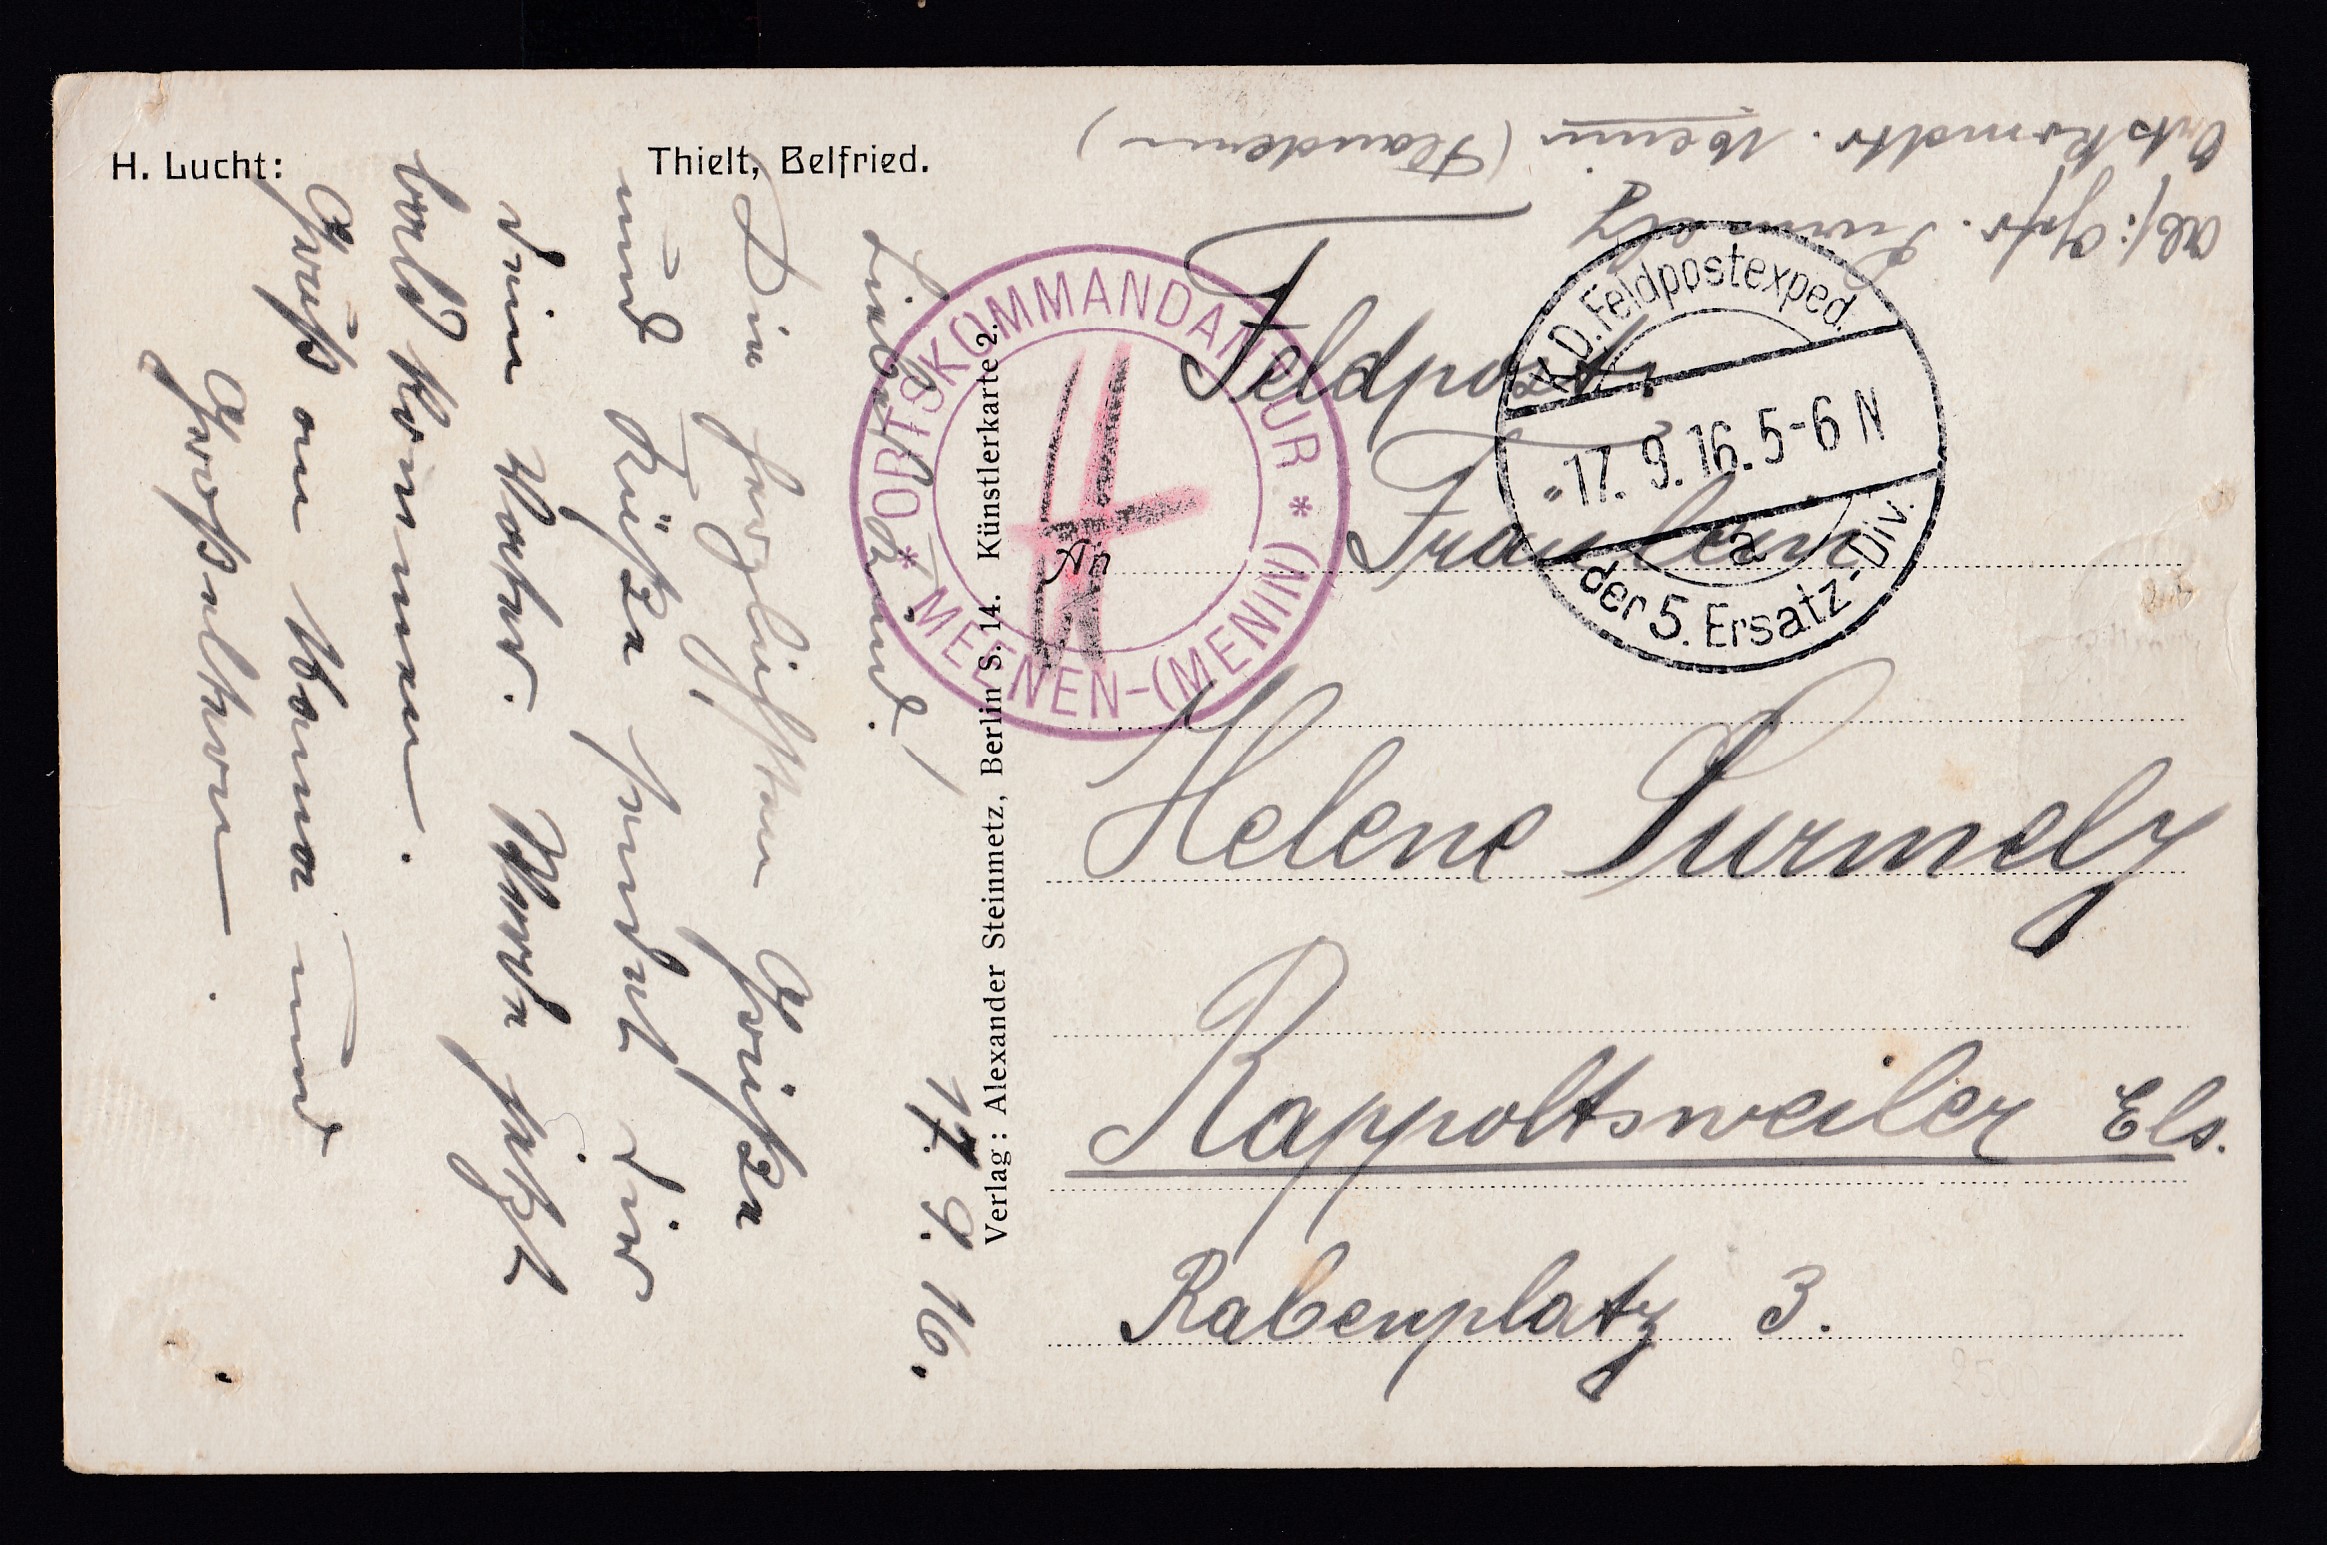 H. Lucht:
Thielt, Belfried.
17. 9. 16.
Liebes Kind!
Die herzlichsten Grüße
und Küße sendet dir
dein Vater. Werde jetzt
bald kommen.
Gruß an Mama und
Großeltern.
Verlag: Alexander Steinmetz, Berlin S. 14. Künstlerkarte 2.
* ORTSKOMMANDANTUR *
MEENEN-(MENIN)
K.D. Feldpostexped.
17. 9. 16. 5-6 N
a
der 5. Ersatz-Div.
Abs: Gefr. Surmely
Ortskomdtr. Menin (Flandern)
Feldpost.
Fräulein
Helene Surmely
Rappoltsweiler Els.
Rabenplatz 3.